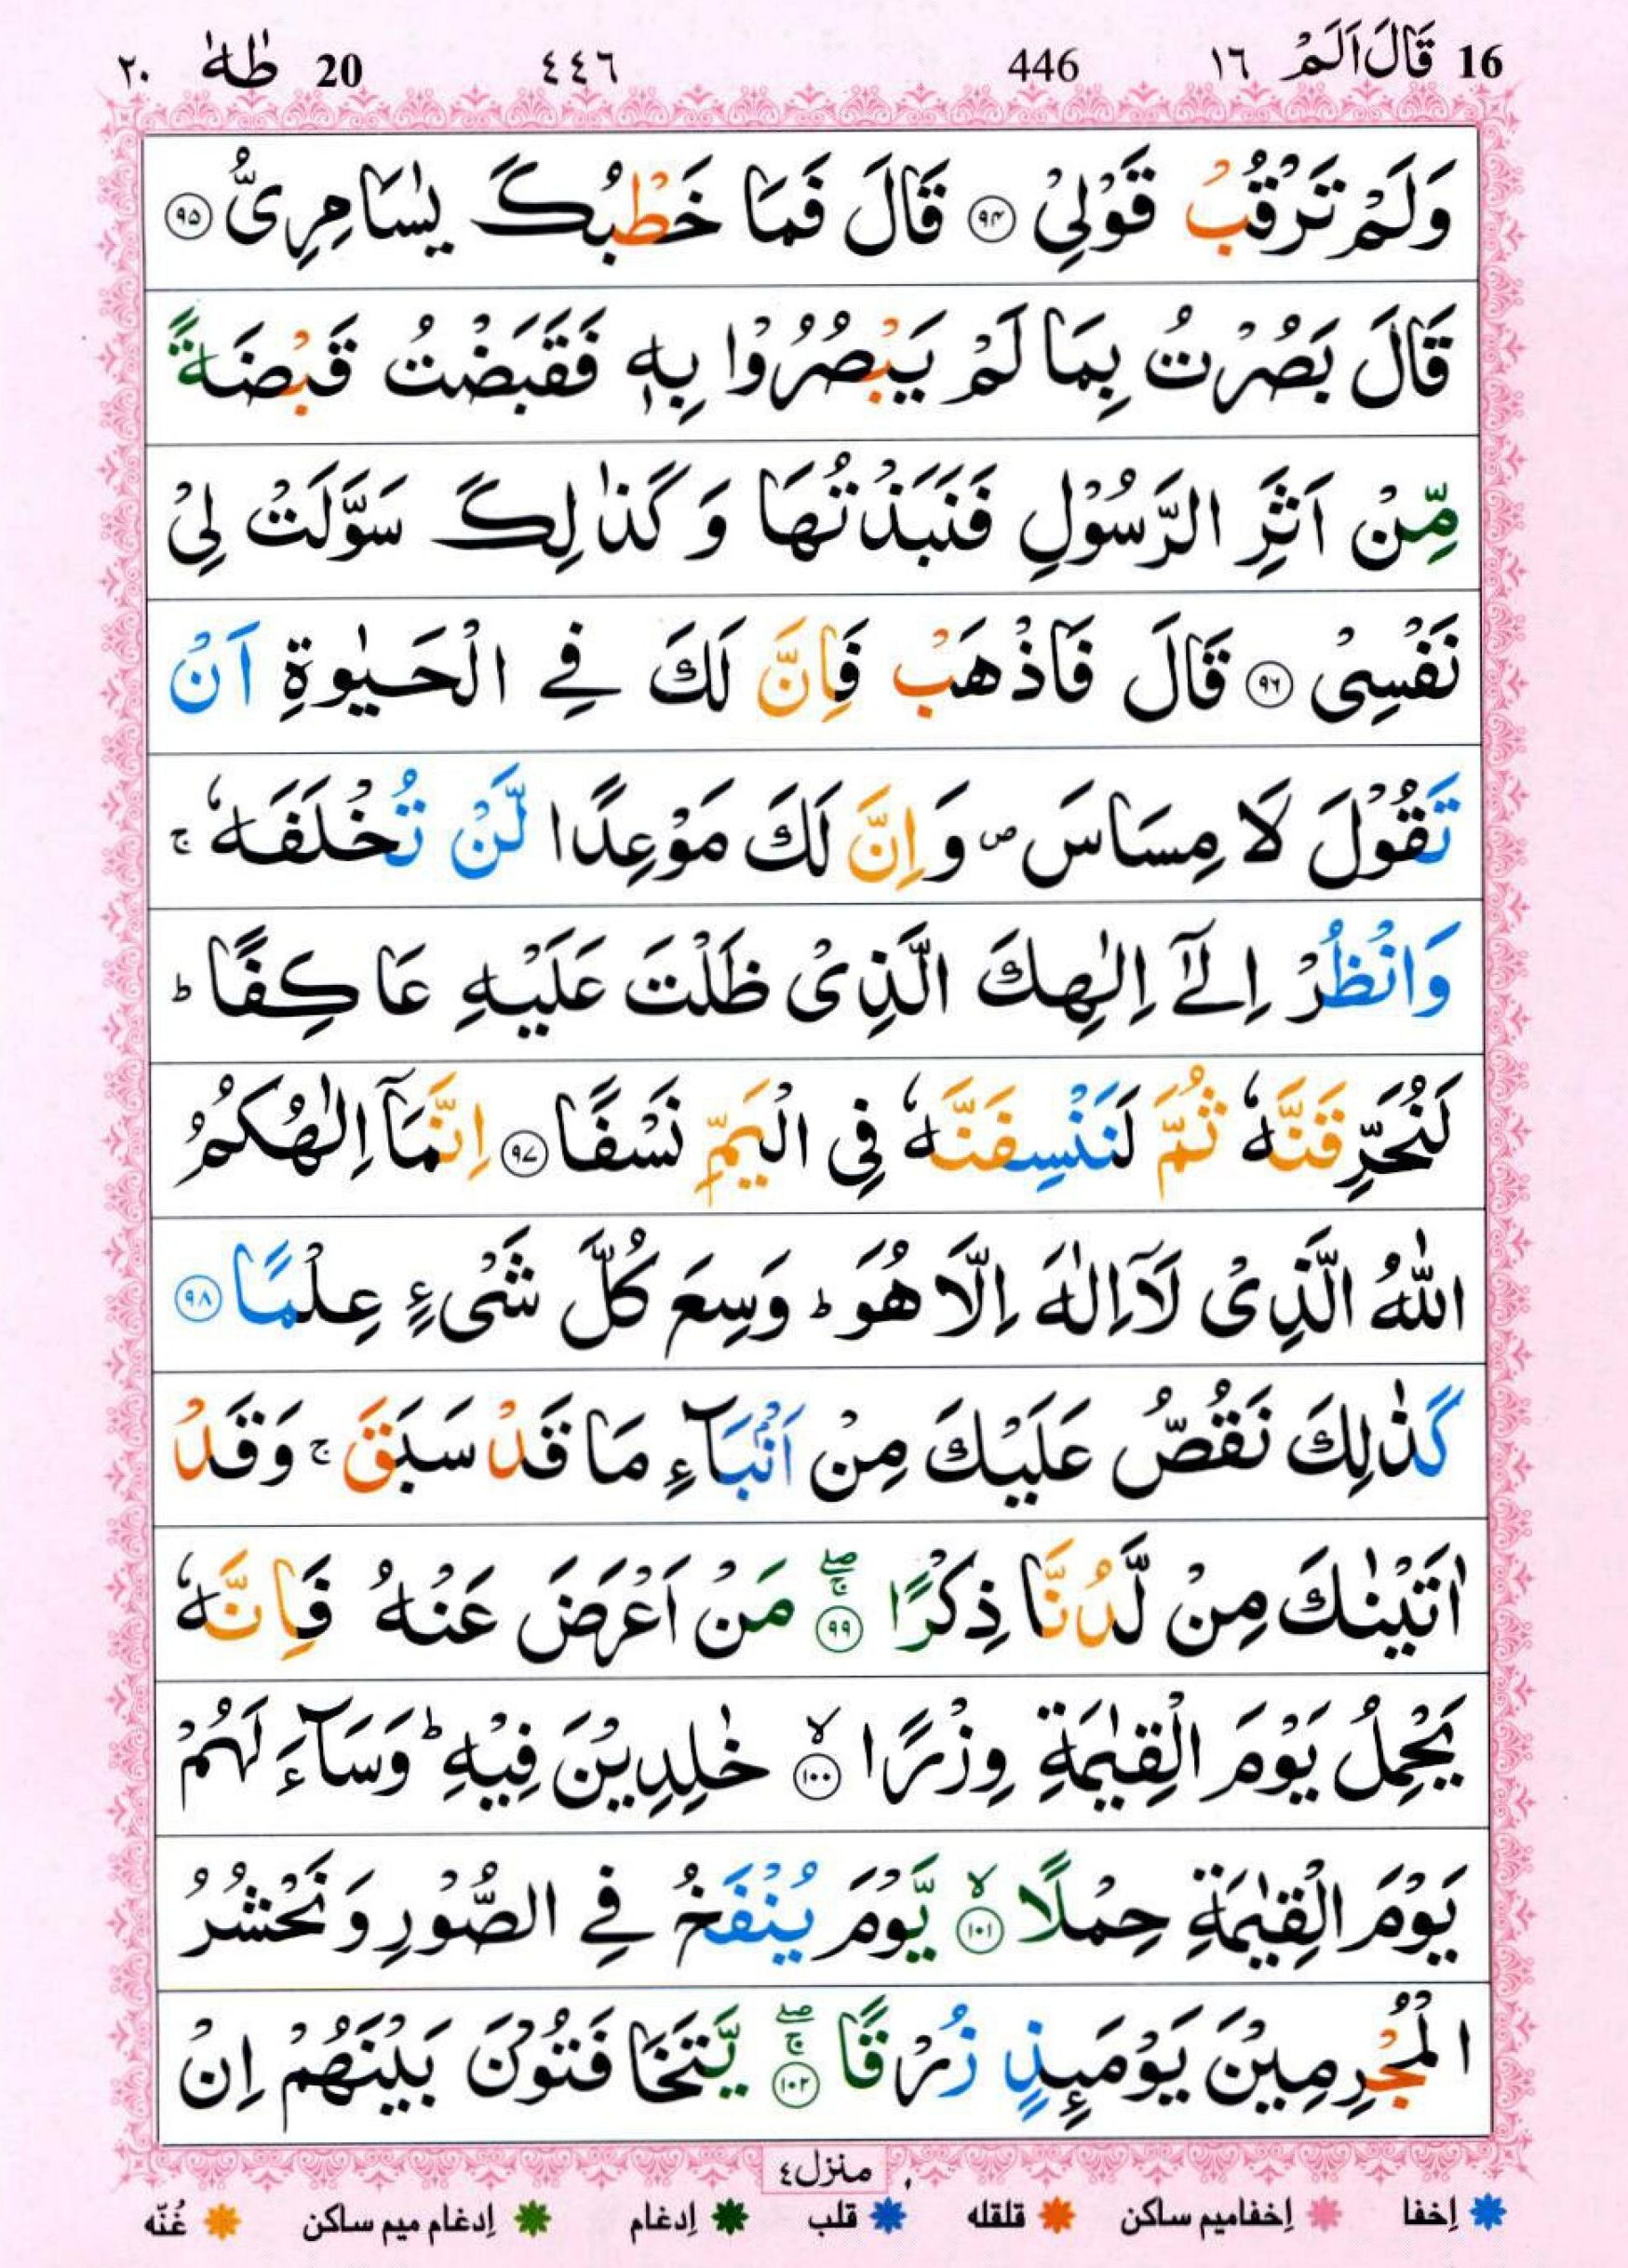 16 قَالَ اَلَمْ ١٦ 446 ٤٤٦ 20 طٰهٰ ٢٠
وَلَمْ تَرْقُبْ قَوْلِیْ ۹۴ قَالَ فَمَا خَطْبُكَ یٰسَامِرِیُّ ۹۵
قَالَ بَصُرْتُ بِمَا لَمْ یَبْصُرُوْا بِهٖ فَقَبَضْتُ قَبْضَةً
مِّنْ اَثَرِ الرَّسُوْلِ فَنَبَذْتُهَا وَكَذٰلِكَ سَوَّلَتْ لِیْ
نَفْسِیْ ۹۶ قَالَ فَاذْهَبْ فَاِنَّ لَكَ فِی الْحَیٰوةِ اَنْ
تَقُوْلَ لَا مِسَاسَ ۪ وَاِنَّ لَكَ مَوْعِدًا لَّنْ تُخْلَفَهٗ ۚ
وَانْظُرْ اِلٰۤی اِلٰهِكَ الَّذِیْ ظَلْتَ عَلَیْهِ عَاكِفًا ؕ
لَنُحَرِّقَنَّهٗ ثُمَّ لَنَنْسِفَنَّهٗ فِی الْیَمِّ نَسْفًا ۹۷ اِنَّمَاۤ اِلٰهُكُمُ
اللّٰهُ الَّذِیْ لَاۤ اِلٰهَ اِلَّا هُوَ ؕ وَسِعَ كُلَّ شَیْءٍ عِلْمًا ۹۸
كَذٰلِكَ نَقُصُّ عَلَیْكَ مِنْ اَنْۢبَآءِ مَا قَدْ سَبَقَ ۚ وَقَدْ
اٰتَیْنٰكَ مِنْ لَّدُنَّا ذِكْرًا ۖۚ ۹۹ مَنْ اَعْرَضَ عَنْهُ فَاِنَّهٗ
یَحْمِلُ یَوْمَ الْقِیٰمَةِ وِزْرًا ۙ ۱۰۰ خٰلِدِیْنَ فِیْهِ ؕ وَسَآءَ لَهُمْ
یَوْمَ الْقِیٰمَةِ حِمْلًا ۙ ۱۰۱ یَّوْمَ یُنْفَخُ فِی الصُّوْرِ وَنَحْشُرُ
الْمُجْرِمِیْنَ یَوْمَىِٕذٍ زُرْقًا ۖۚ ۱۰۲ یَّتَخَافَتُوْنَ بَیْنَهُمْ اِنْ
منزل٤
إخفا إخفامیم ساکن قلقله قلب إدغام إدغام میم ساکن غُنّه